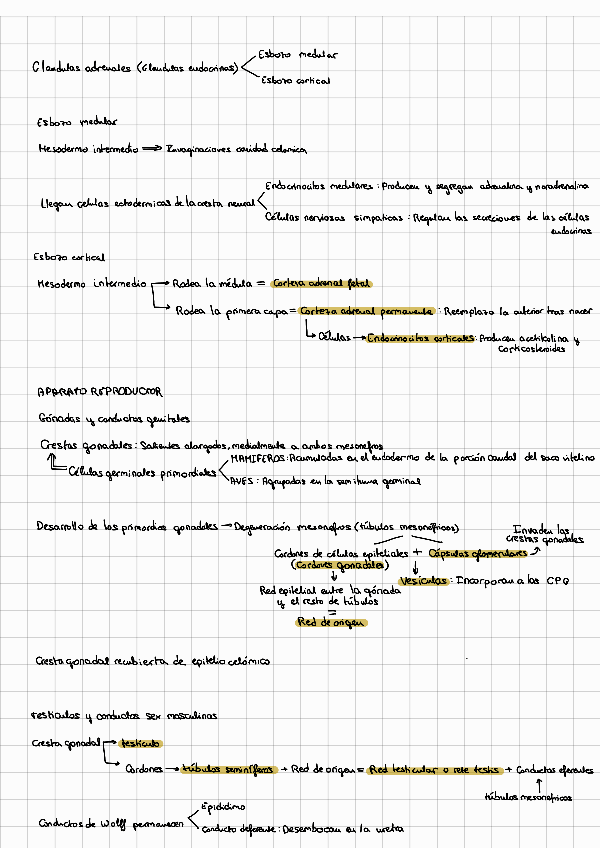 Glandulas adrenales (Glandulas endocrinas)
Esbozo medular
Esbozo cortical
Esbozo medular
Mesodermo intermedio ⟹ Invaginaciones cavidad celómica
Llegan células ectodermicas de la cresta neural
Endocrinocitos medulares : Producen y segregan adrenalina y noradrenalina
Células nerviosas simpaticas : Regulan las secreciones de las células
endocrinas
Esbozo cortical
Mesodermo intermedio → Rodea la médula = Corteza adrenal fetal
Rodea la primera capa = Corteza adrenal permanente : Reemplaza la anterior tras nacer
Células → Endocrinocitos corticales : Producen acetilcolina y
corticosteroides
APARATO REPRODUCTOR
Gónadas y conductos genitales
Crestas gonadales : Salientes alargados, medialmente a ambos mesonefros
Células germinales primordiales
MAMIFEROS : Acumuladas en el endodermo de la porción caudal del saco vitelino
AVES : Agrupadas en la semiluna germinal
Desarrollo de los primordios gonadales → Degeneración mesonefros (túbulos mesonéfricos)
Invaden las
crestas gonadales
Cordones de células epiteliales + Cápsulas glomerulares
(Cordones gonadales)
Vesículas : Incorporan a las CPG
Red epitelial entre la gónada
y el resto de túbulos
=
Red de origen
Cresta gonadal recubierta de epitelio celómico
Testiculos y conductos sex masculinos
Cresta gonadal → testículo
Cordones → túbulos seminíferos + Red de origen = Red testicular o rete testis + Conductos eferentes
túbulos mesonefricos
Conductos de Wolff permanecen
Epididimo
Conducto deferente : Desembocan en la uretra